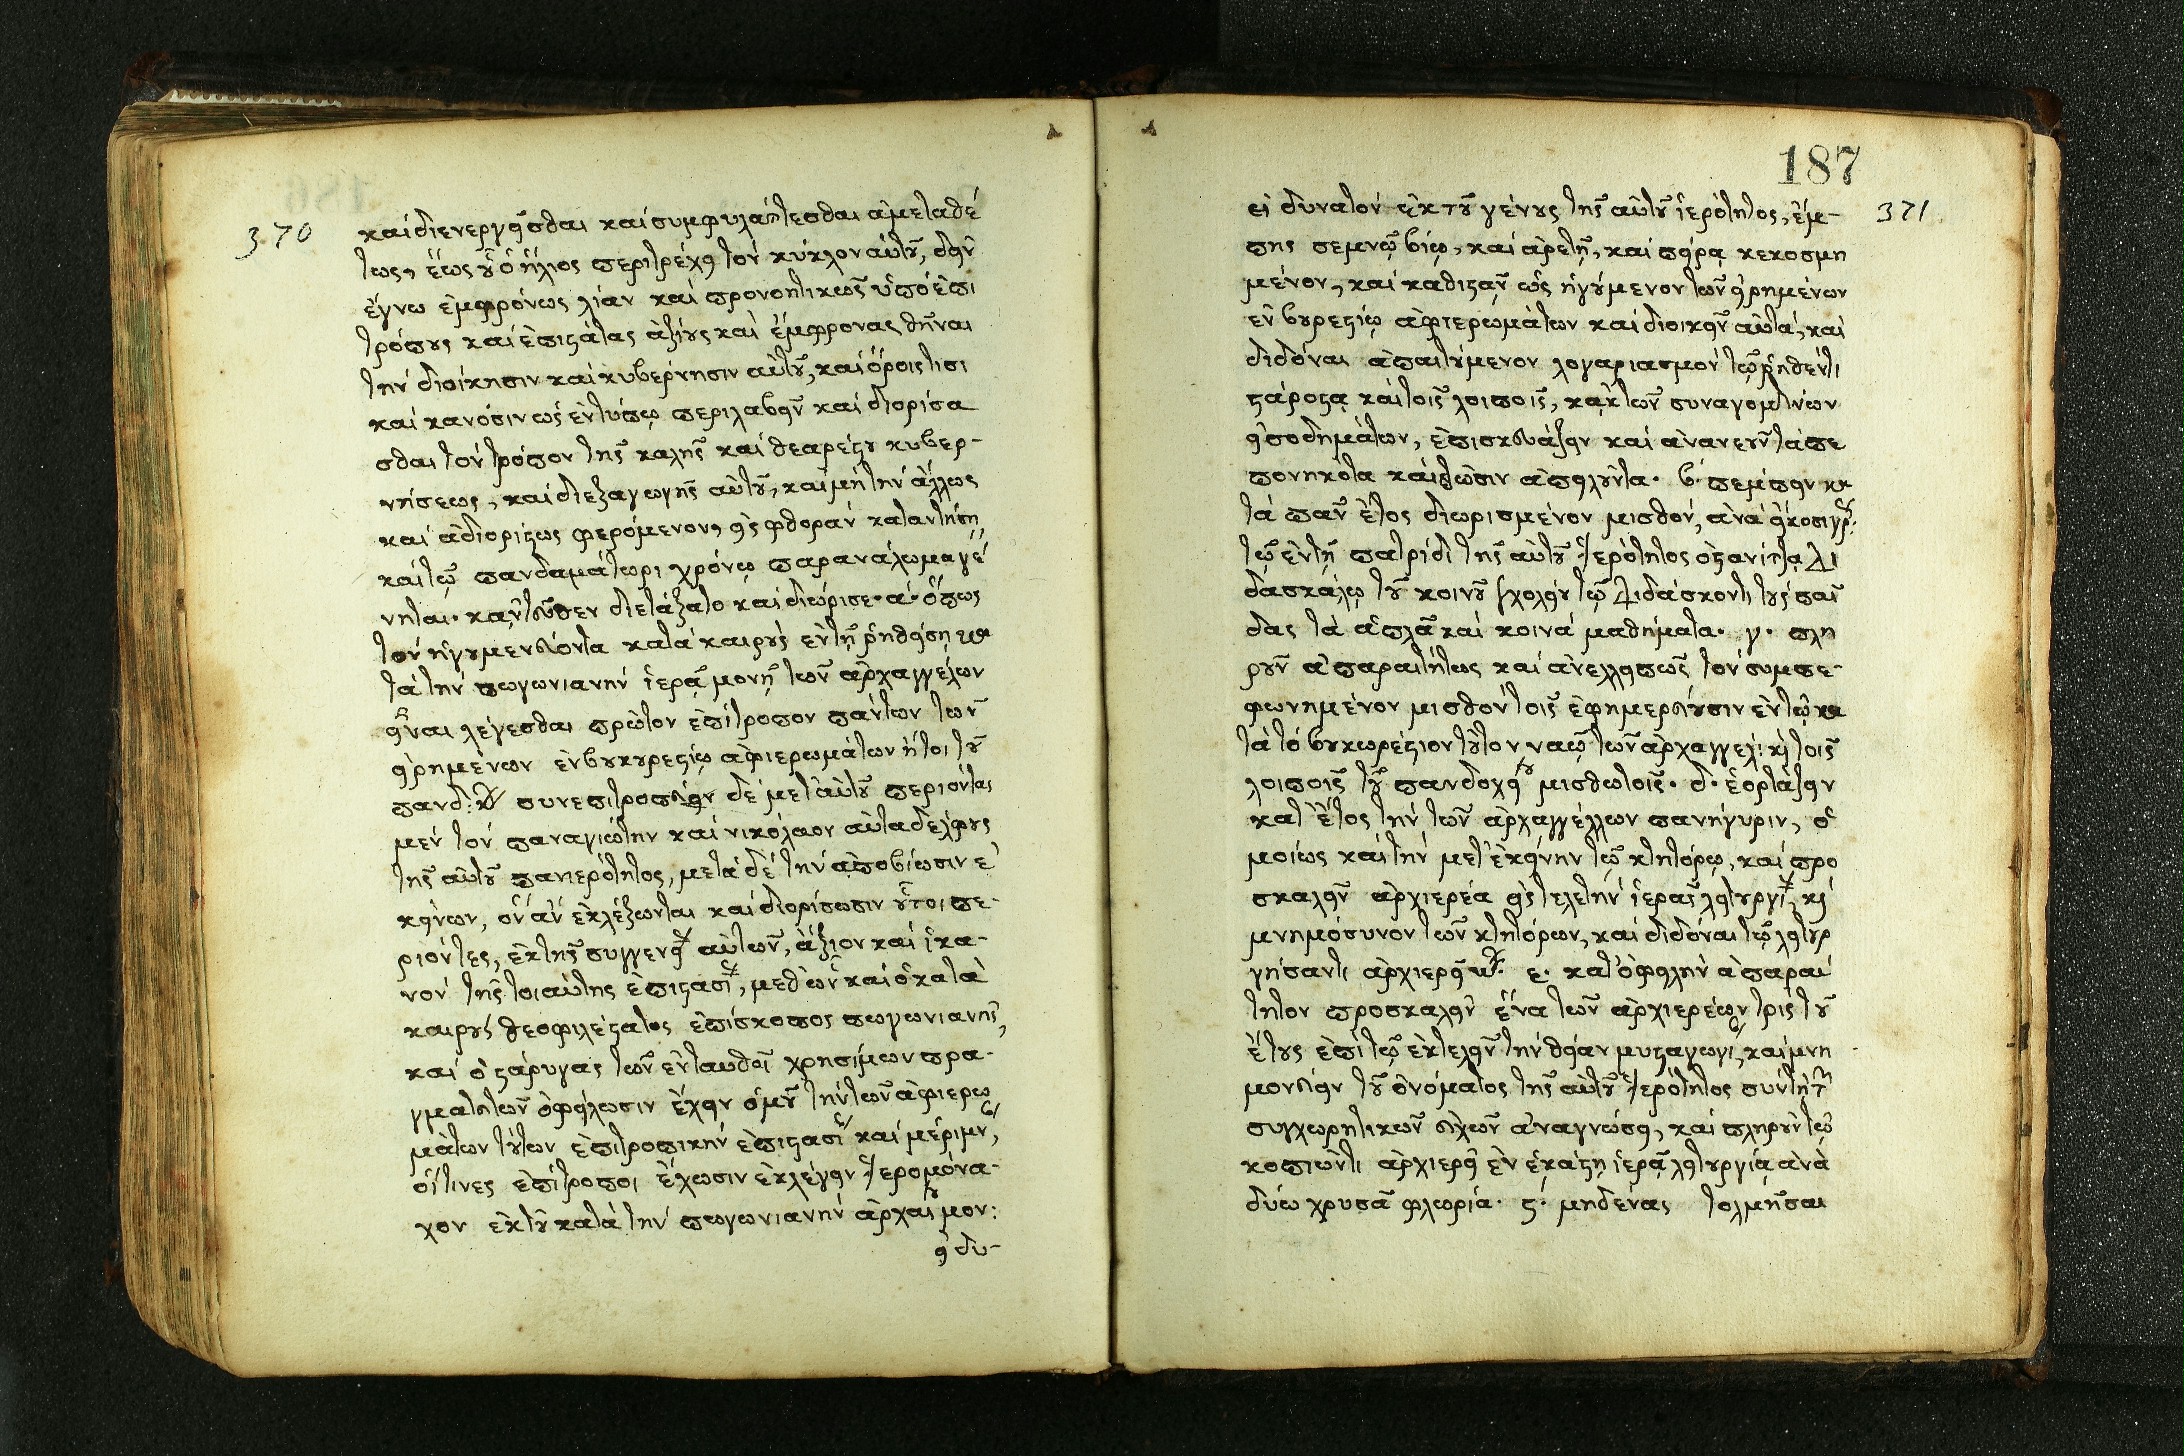 370
καὶ διενεργεῖσθαι καὶ συμφυλάττεσθαι ἀμεταθέ
τως, ἕως οὗ ὁ ἥλιος περιτρέχει τὸν κύκλον αὐτοῦ, δεῖν
ἔγνω ἐμφρόνως λίαν καὶ προνοητικῶς ὑπὸ ἐπι
τρόπους καὶ ἐπιστάτας ἀξίους καὶ ἔμφρονας θῆναι
τὴν διοίκησιν καὶ κυβέρνησιν αὐτοῦ, καὶ ὅροις τισὶ
καὶ κανόσιν ὡς ἐν τύπῳ περιλαβεῖν καὶ διορίσα
σθαι τὸν τρόπον τῆς καλῆς καὶ θεαρέστου κυβερ-
νήσεως, καὶ διεξαγωγῆς αὐτοῦ, καὶ μὴ τὴν ἄλλως
καὶ ἀδιορίστως φερόμενον, εἰς φθορὰν καταντήσῃ,
καὶ τῷ πανδαμάτωρι χρόνῳ παρανάλωμα γέ
νηται. κἀντεῦθεν διετάξατο καὶ διώρισε. α. ὅπως
τὸν ἡγουμενεύοντα κατὰ καιροὺς ἐν τῇ ῥηθείσῃ κα
τὰ τὴν πωγωνιανὴν ἱερᾷ μονῇ τῶν ἀρχαγγέλων
εἶναι λέγεσθαι πρῶτον ἐπίτροπον πάντων τῶν
εἰρημένων ἐν βουκουρεστίῳ ἀφιερωμάτων ἤτοι τοῦ
πανδ: συνεπιτροπεύειν δὲ μετ' αὐτοῦ περιόντας
μὲν τὸν παναγιώτην καὶ νικόλαον αὐταδέλφους
τῆς αὐτοῦ πανιερότητος, μετὰ δὲ τὴν ἀποβίωσιν ἐ
κείνων, ὃν ἂν ἐκλέξωνται καὶ διορίσωσιν οὗτοι πε-
ριόντες, ἐκ τῆς συγγενεί αὐτῶν, ἄξιον καὶ ἱκα-
νὸν τῆς τοιαύτης ἐπιστασί, μεθ' ὧν καὶ ὁ κατὰ
καιροὺς θεοφιλέστατος ἐπίσκοπος πωγωνιανῆς,
καὶ ὁ στάρυγας τῶν ἐνταυθοῖ χρησίμων πρα-
γματευτῶν ὀφείλωσιν ἔχειν ὁμοῦ τὴν τῶν ἀφιερω
μάτων τούτων ἐπιτροπικὴν ἐπιστασί καὶ μέριμν,
οἵτινες ἐπίτροποι ἔχωσιν ἐκλέγειν ἱερομόνα-
χον ἐκ τοῦ κατὰ τὴν πωγωνιανὴν ἀρχαγ μον:
εἰ δυ-
187
371
εἰ δυνατὸν ἐκ τοῦ γένους τῆς αὐτοῦ ἱερότητος, ἔμ-
πης σεμνῷ βίῳ, καὶ ἀρετῇ, καὶ πείρᾳ κεκοσμη
μένον, καὶ καθιστᾶν ὡς ἡγούμενον τῶν εἰρημένων
ἐν βουρεστίῳ ἀφιερωμάτων καὶ διοικεῖν αὐτά, καὶ
διδόναι ἀπαιτούμενον λογαριασμὸν τῷ ῥηθέντι
στάροστᾳ καὶ τοῖς λοιποῖς, κἀκ τῶν συναγομένων
εἰσοδημάτων, ἐπισκευάζειν καὶ ἀνανεοῦν τὰ πε
πονηκότα καὶ πτῶσιν ἀπειλοῦντα. β. πέμπειν κα
τὰ πᾶν ἔτος διωρισμένον μισθόν, ἀνὰ εἴκοσι γρ:
τῷ ἐν τῇ πατρίδι τῆς αὐτοῦ ἱερότητος ὀστανίτζᾳ δι
δασκάλῳ τοῦ κοινοῦ σχολείου τῷ διδάσκοντι τοὺς παῖ
δας τὰ ἁπλᾶ καὶ κοινὰ μαθήματα. γ. πλη
ροῦν ἀπαραιτήτως καὶ ἀνελλειπῶς τὸν συμπε-
φωνημένον μισθὸν τοῖς ἐφημερεύουσιν ἐν τῷ κα
τὰ τὸ βουκωρέστιον τοῦτον ναῷ τῶν ἀρχαγγέλ: καὶ τοῖς
λοιποῖς τοῦ πανδοχεί μισθωτοῖς. δ. ἑορτάζειν
κατ' ἔτος τὴν τῶν ἀρχαγγέλλων πανήγυριν, ὁ
μοίως καὶ τὴν μετ' ἐκείνην τῷ κτητόρῳ, καὶ προ
σκαλεῖν ἀρχιερέα εἰς τελετὴν ἱερᾶς λειτουργί, καὶ
μνημόσυνον τῶν κτητόρων, καὶ διδόναι τῷ λειτουρ
γήσαντι ἀρχιερεῖ. ε. κατ' ὀφειλὴν ἀπαραί
τητον προσκαλεῖν ἕνα τῶν ἀρχιερέων τρὶς τοῦ
ἔτους ἐπὶ τῷ ἐκτελεῖν τὴν θείαν μυσταγωγί, καὶ μνη
μονεύειν τοῦ ὀνόματος τῆς αὐτοῦ ἱερότητος σὺν τῇ τῶν
συγχωρητικῶν εὐχῶν ἀναγνώσει, καὶ πληροῦν τῷ
κοπιῶντι ἀρχιερεῖ ἐν ἑκάστῃ ἱερᾷ λειτουργίᾳ ἀνὰ
δύω χρυσᾶ φλωρία. ϛ. μηδένας τολμῆσαι